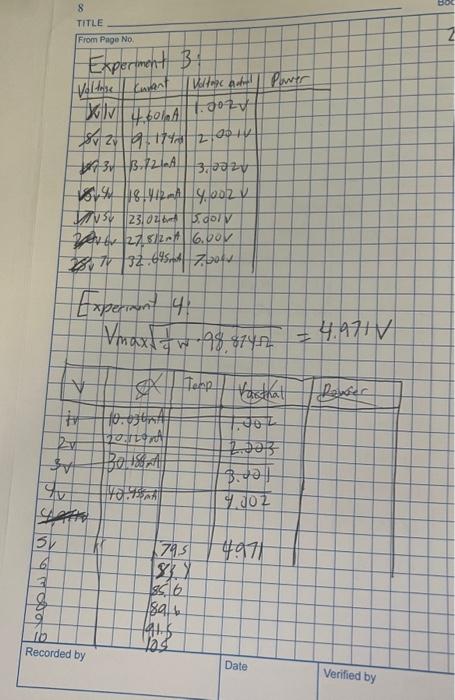 8
TITLE
From Page No.
Experiment 3:
Voltage Current Voltage actual Power
1v 4.601mA 1.002V
2v 9.174mA 2.001V
3v 13.721mA 3.002V
4v 18.412mA 4.002V
5v 23.026mA 5.001V
6v 27.812mA 6.00V
7v 32.695mA 7.00V
Experiment 4:
Vmax √ 1/4 w · 98.874Ω = 4.971V
V Temp Vactual Power
1v 10.036mA 1.002
2v 20.120mA 2.003
3v 30.188mA 3.001
4v 4.002
5v 79.5 4.971
6 83.4
7 85.6
8 89.6
9 91.5
10 105
Recorded by
Date
Verified by